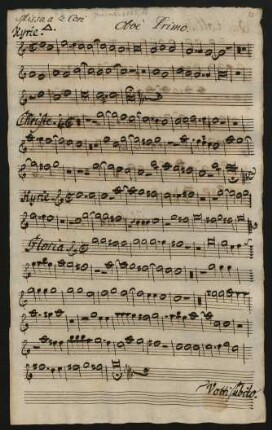 Missa a 2 Cori
Oboe Primo.
Kyrie.
Christe.
Kyrie
Gloria.
Volti subito.